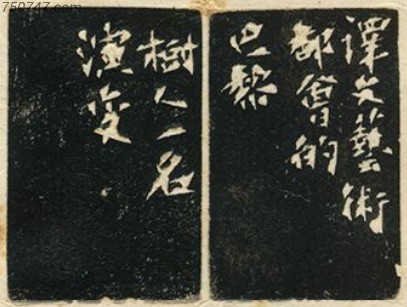 750747.com
譯文藝術
都會的
巴黎
樹人一名
演变